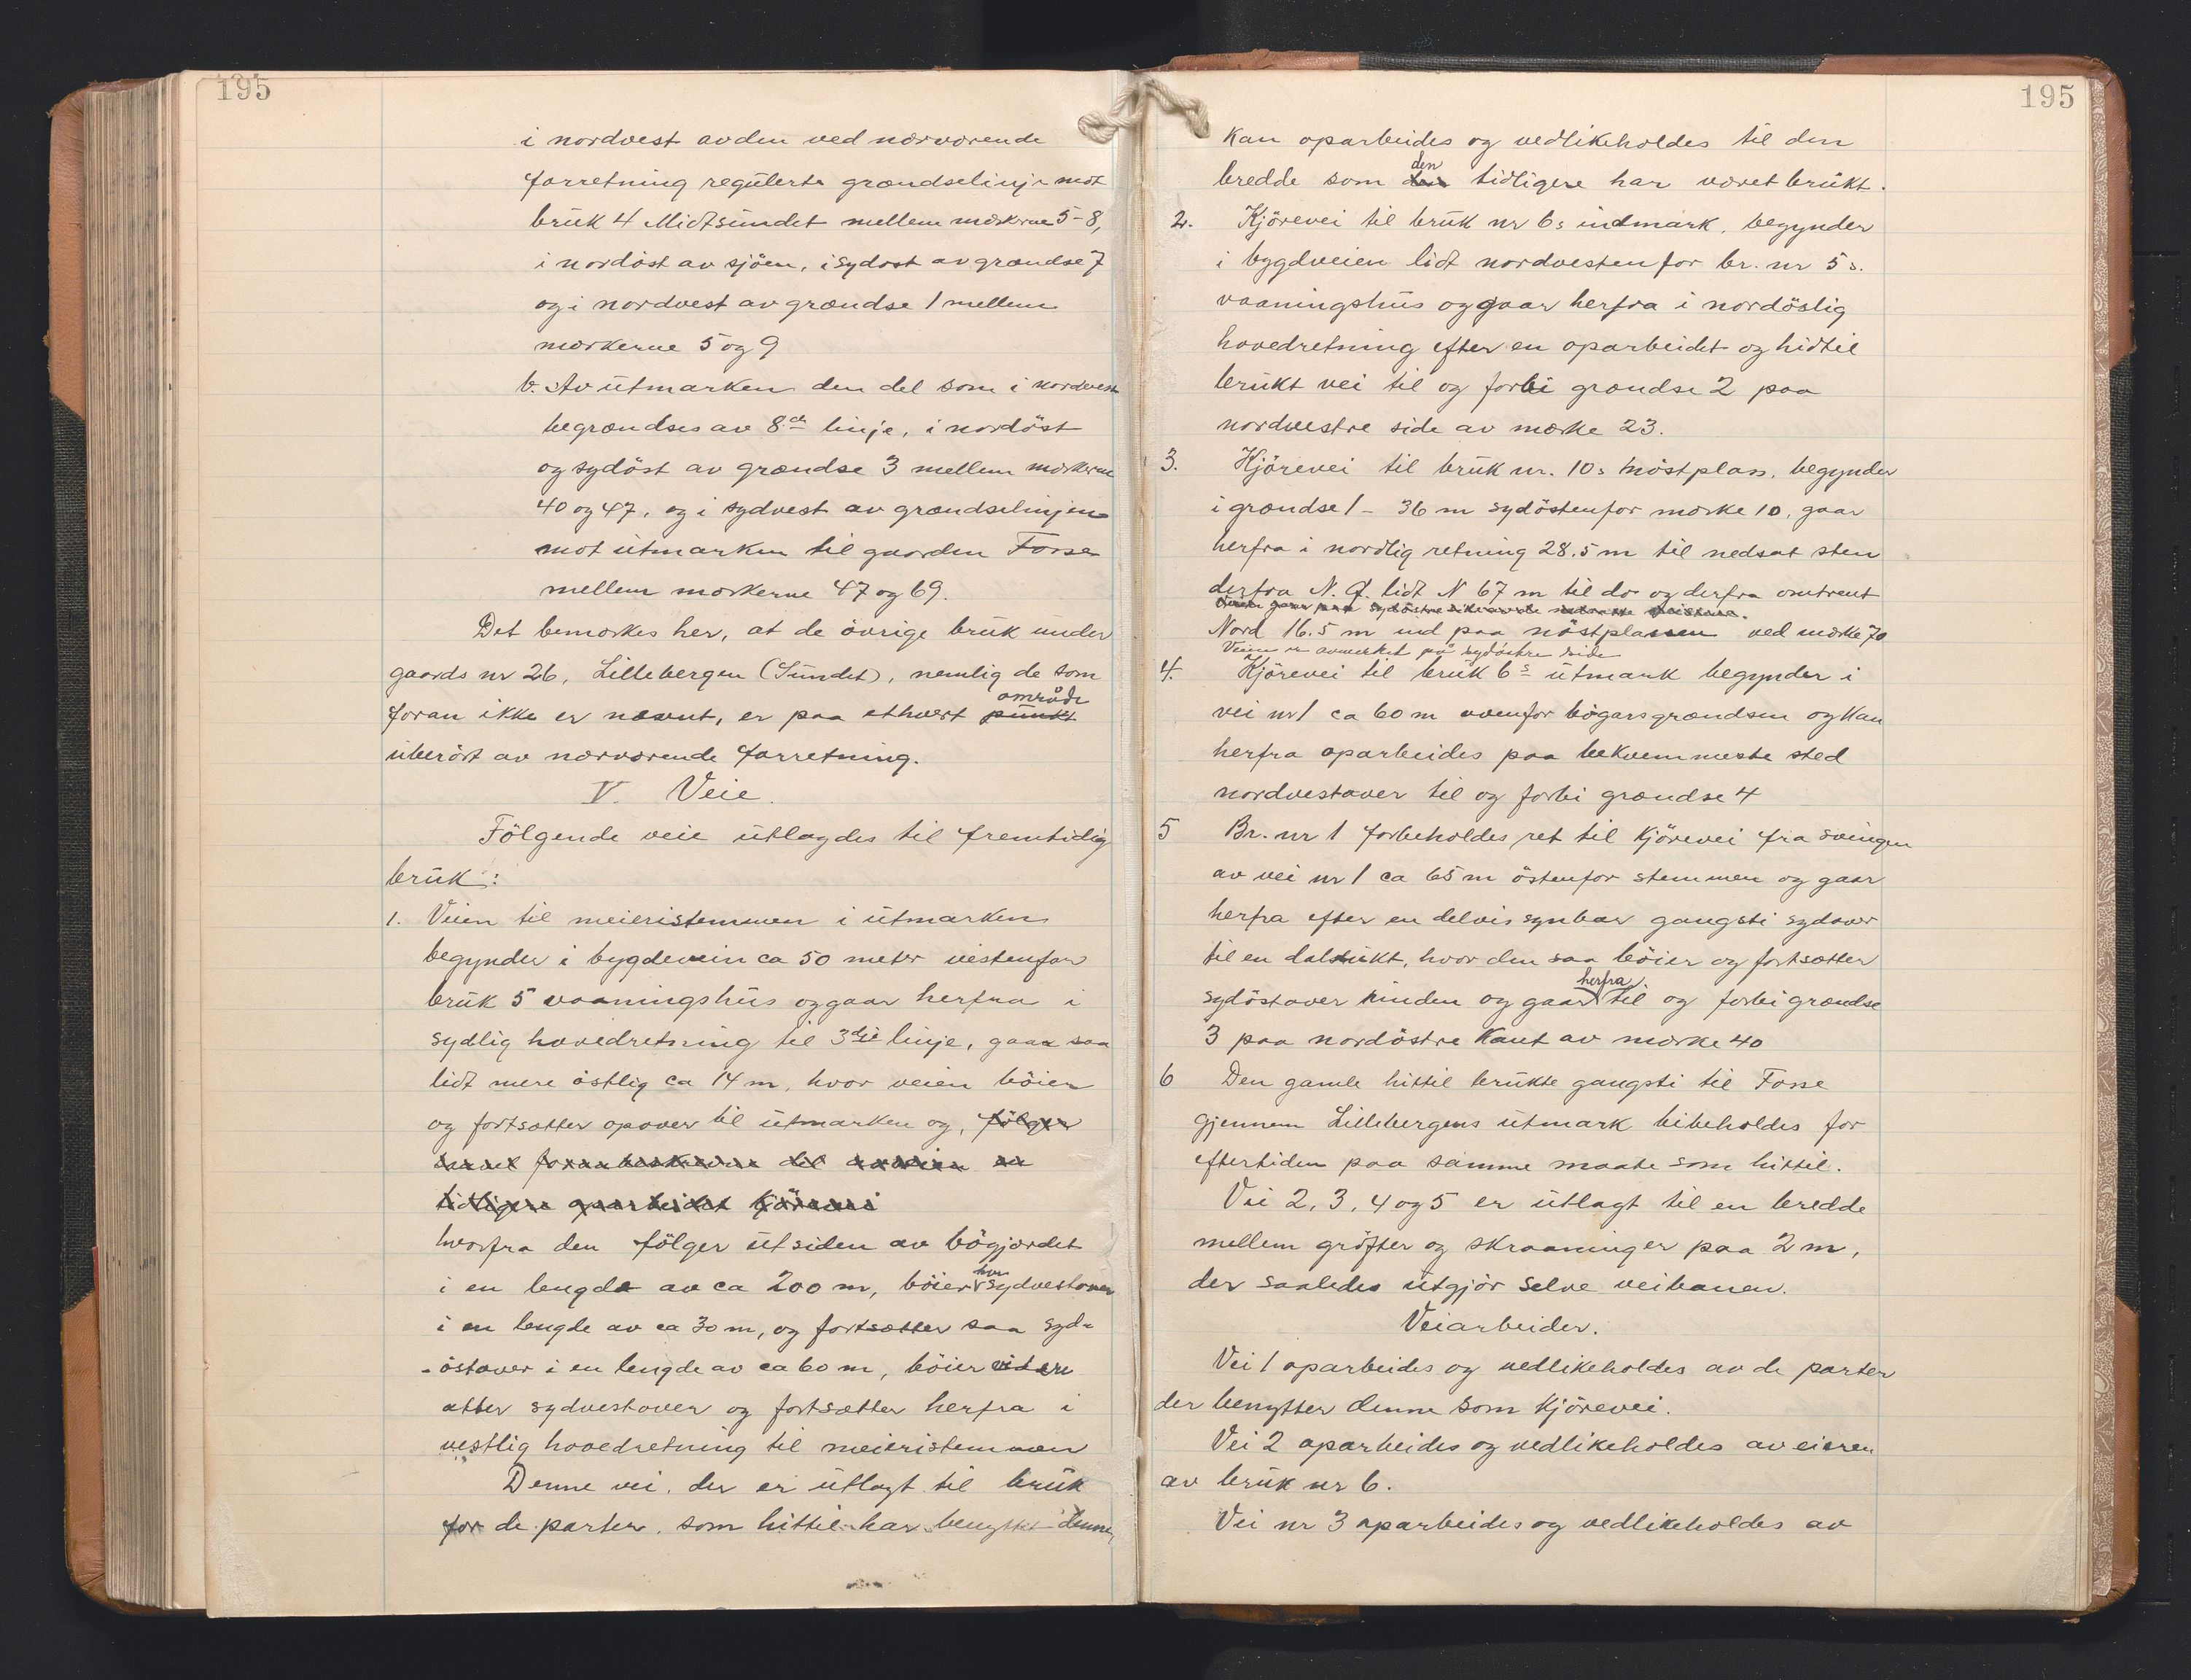 195
i nordvest av den ved nærværende
forretning regulerte grændselinje mot
bruk 4 Midtsundet mellem mærkerne 5-8,
i nordöst av sjöen, i sydöst av grændse 7
og i nordvest av grændse 1 mellem
mærkerne 5 og 9
b. Av utmarken den del som i nordvest
begrændses av 8de linje, i nordöst
og sydöst av grændse 3 mellem mærkerne
40 og 47, og i sydvest av grændselinjen
mot utmarken til gaarden Fosse
mellem mærkerne 47 og 69.
Det bemærkes her, at de övrige bruk under
gaards nr 26, Lillebergen (Sundet), nemlig de som
område
foran ikke er nævnt, er paa ethvert punkt
uberört av nærværende forretning.
V. Veie.
Fölgende veie utlagdes til fremtidig
bruk:
1. Veien til meieristemmen i utmarken
begynder i bygdeveien ca 50 meter vestenfor
bruk 5 vaaningshus og gaar herfra i
sydlig hovedretning til 3dje linje, gaar saa
lidt mere östlig ca 14 m, hvor veien böier
og fortsætter opover til utmarken og, fölger
foranbeskrevne del
tidligere oparbeidet kjörevei
hvorfra den fölger utsiden av bögjerdet
i en lengde av ca 200 m, böier her sydvestover
i en lengde av ca 30 m, og fortsætter saa syd-
-östover i en lengde av ca 60 m, böier videre
atter sydvestover og fortsætter herfra i
vestlig hovedretning til meieristemmen
Denne vei, der er utlagt til bruk
for de parter, som hittil har benyttet denne,
195
kan oparbeides og vedlikeholdes til den
den
bredde som tidligere har været brukt.
2. Kjörevei til bruk nr 6s indmark, begynder
i bygdveien lidt nordvestenfor br. nr 5s.
vaaningshus og gaar herfra i nordöslig
hovedretning efter en oparbeidet og hidtil
brukt vei til og forbi grændse 2 paa
nordvestre side av mærke 23.
3. Kjörevei til bruk nr. 10s nöstplass, begynder
i grændse 1 - 36 m sydöstenfor mærke 10, gaar
herfra i nordlig retning 28.5 m til nedsat sten
derfra N. Ö. lidt N 67 m til do og derfra omtrent
Veien gaar paa sydöstre side av de nedsatte
Nord 16.5 m ind paa nöstplassen ved mærke 70
Veien er avmerket på sydöstre side
4. Kjörevei til bruk 6s utmark begynder i
vei nr 1 ca 60 m ovenfor bögarsgrændsen og kan
herfra oparbeides paa bekvemmeste sted
nordvestover til og forbi grændse 4
5 Br. nr 1 forbeholdes ret til kjörevei fra svingen
av vei nr 1 ca 65 m östenfor stemmen og gaar
herfra efter en delvis synbar gangsti sydover
til en dalsukt, hvor den saa böier og fortsætter
herfra
sydöstover rinden og gaar til og forbi grændse
3 paa nordöstre kant av mærke 40
6 Den gamle hittil brukte gangsti til Fosse
gjennem Lillebergens utmark bibeholdes for
eftertiden paa samme maate som hittil.
Vei 2, 3, 4 og 5 er utlagt til en bredde
mellem gröfter og skraaninger paa 2 m,
der saaledes utgjör selve veibanen.
Veiarbeider.
Vei 1 oparbeides og vedlikeholdes av de parter
der benytter denne som kjörevei.
Vei 2 oparbeides og vedlikeholdes av eieren
av bruk nr 6.
Vei nr 3 oparbeides og vedlikeholdes av